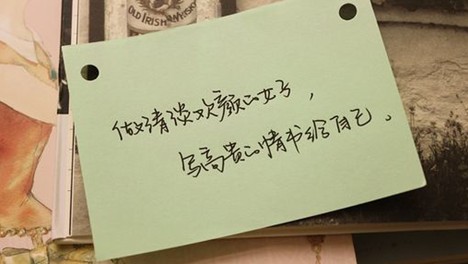 OLD IRISH WHISKY
做清淡欢颜的女子，
写高贵的情书给自己、